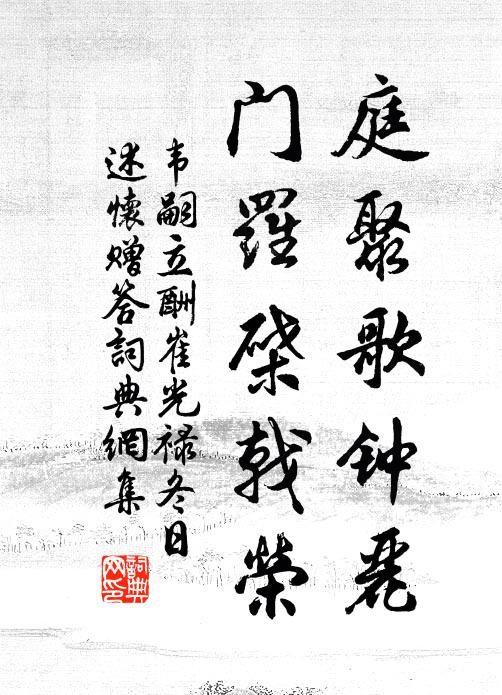 庭聚歌钟丽
门罗棨戟荣
韦嗣立酬崔光禄冬日
述懷赠答詞典網集
詞典网印